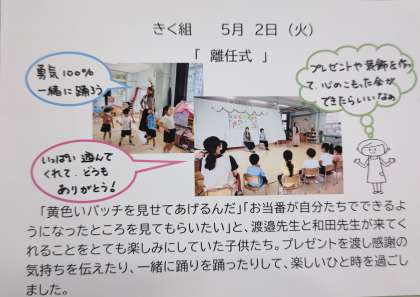 きく組　5月 2日（火）
「 離任式 」
勇気100%
一緒に踊ろう
プレゼントや装飾を作っ
て、心のこもった会が
できたらいいなぁ
いっぱい 遊んで
くれて、どうも
ありがとう！
「黄色いバッチを見せてあげるんだ」「お当番が自分たちでできるよ
うになったところを見てもらいたい」と、渡邉先生と和田先生が来てく
れることをとても楽しみにしていた子供たち。プレゼントを渡し感謝の
気持ちを伝えたり、一緒に踊りを踊ったりして、楽しいひと時を過ごし
ました。